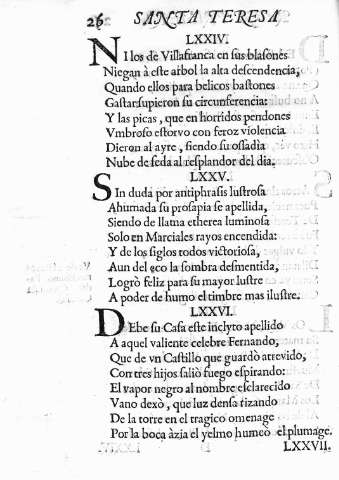 26 SANTA TERESA
LXXIV.
NI los de Villafranca en sus blasones
Niegan à este arbol la alta descendencia,
Quando ellos para belicos bastones
Gastar supieron su circunferencia:
Y las picas, que en horridos pendones
Vmbroso estorvo con feroz violencia
Dieron al ayre, siendo su ossadia
Nube de seda al resplandor del dia.
LXXV.
SIn duda por antiphrasis lustrosa
Ahumada su prosapia se apellida,
Siendo de llama etherea luminosa
Solo en Marciales rayos encendida:
Y de los siglos todos victoriosa,
Aun del eco la sombra desmentida,
Logrò feliz para su mayor lustre
A poder de humo el timbre mas ilustre.
LXXVI.
DEbe su Casa este inclyto apellido
A aquel valiente celebre Fernando,
Que de vn Castillo que guardò atrevido,
Con tres hijos saliò fuego espirando:
El vapor negro al nombre esclarecido
Vano dexò, que luz densa tizando
De la torre en el tragico omenage
Por la boca àzia el yelmo humeò el plumage.
LXXVII.